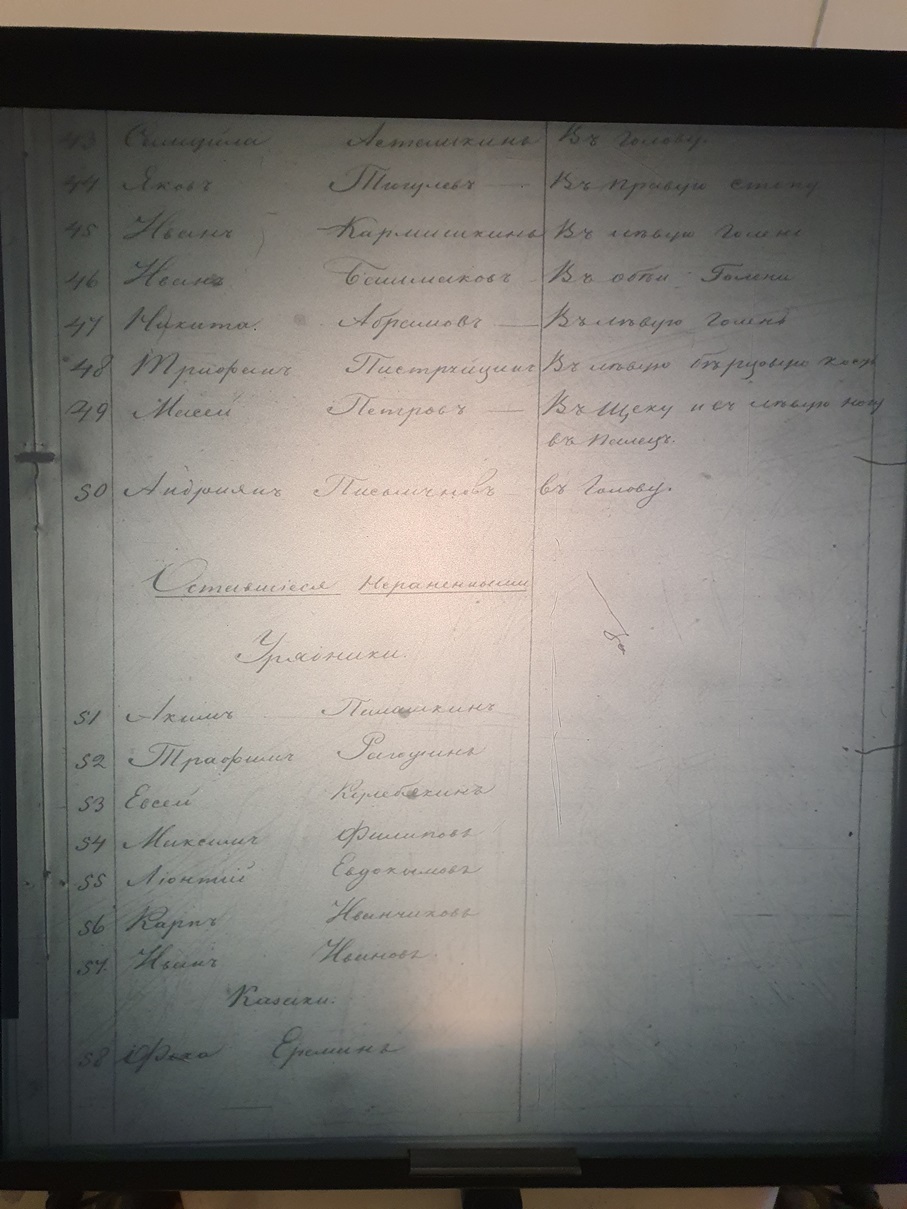 43 Самойла Асташкинъ Въ Голову.
44 Яковъ Тюгулевъ — Въ правую стопу
45 Иванъ Кармишкинъ Въ лѣвую Голень
46 Иванъ Башмаковъ — Въ обѣи Голени
47 Никита. Абрамовъ — Въ лѣвую Голень
48 Трифонъ Въ лѣвую бѣрцовую кость
49 Масей Петровъ — Въ Щеку и въ лѣвую ногу
въ палецъ.
50 Андриянъ въ Голову.
Оставшіеся Нераненными
Урядники.
51 Акимъ
52 Трафимъ Рагозинъ
53 Евсей Кулебякинъ
54 Максимъ Филиповъ
55 Ліонтій Евдокимовъ
56 Карпъ Иванчиковъ
57. Иванъ Ивановъ.
Казаки.
58 Фока Ереминъ